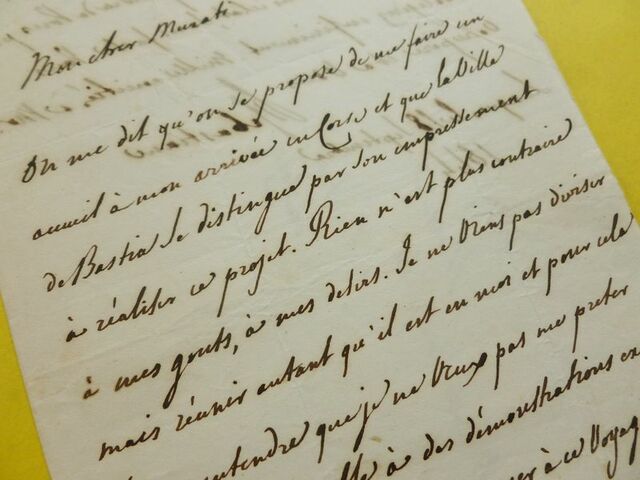 Mon cher Murati
On me dit qu'on se propose de me faire un
accueil à mon arrivée en Corse et que la Ville
de Bastia se distingue par son empressement
à réaliser ce projet. Rien n'est plus contraire
à mes gouts, à mes desirs. Je ne viens pas diviser
mais réunir autant qu'il est en moi et pour cela
entendre que je ne veux pas me preter
à des démonstrations
à ce Voyag